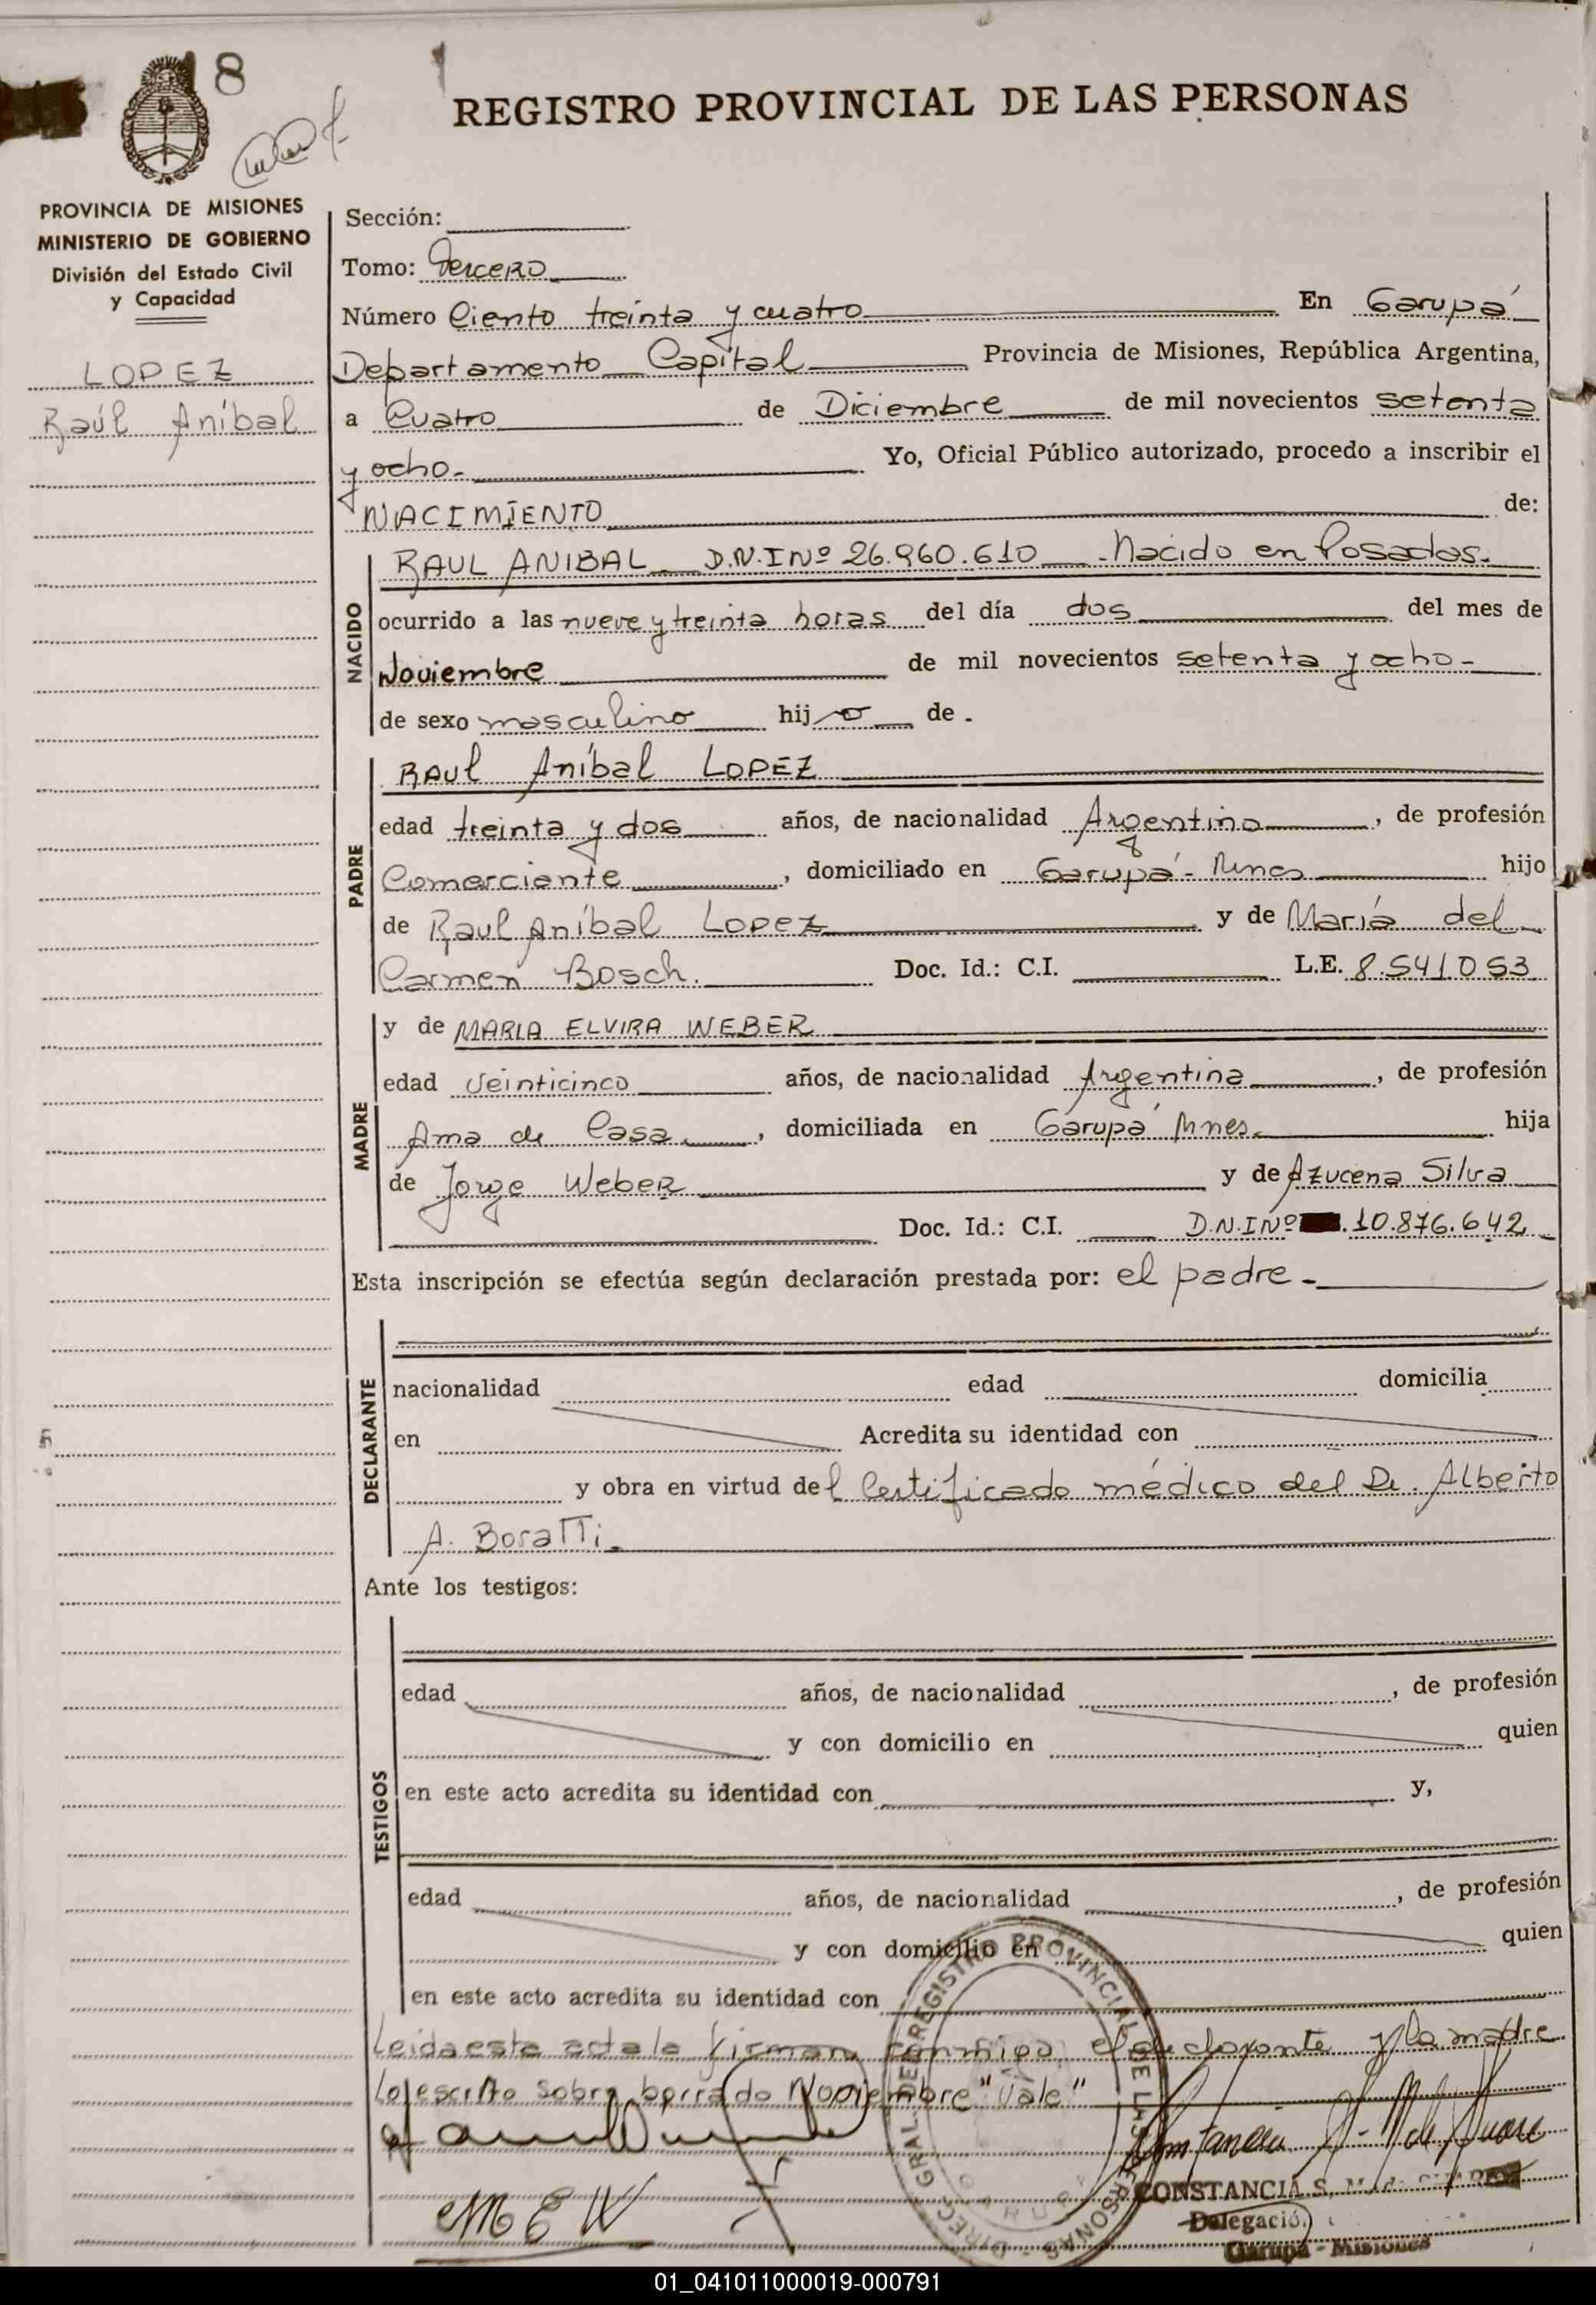 8
REGISTRO PROVINCIAL DE LAS PERSONAS
PROVINCIA DE MISIONES
MINISTERIO DE GOBIERNO
División del Estado Civil
y Capacidad
LOPEZ
Raúl Aníbal
Sección:
Tomo: Tercero
Número Ciento treinta y cuatro En Garupá
Departamento Capital Provincia de Misiones, República Argentina,
a Cuatro de Diciembre de mil novecientos setenta
y ocho.- Yo, Oficial Público autorizado, procedo a inscribir el
NACIMIENTO de:
NACIDO
RAUL ANIBAL D.N.I Nº 26.960.610 - Nacido en Posadas.-
ocurrido a las nueve y treinta horas del día dos del mes de
Noviembre de mil novecientos setenta y ocho-
de sexo masculino hijo de.
PADRE
RAUl Aníbal LOPEZ
edad treinta y dos años, de nacionalidad Argentina, de profesión
Comerciante, domiciliado en Garupá- Mnes hijo
de Raul Aníbal Lopez y de María del
Carmen Bosch. Doc. Id.: C.I. L.E. 8.541.053
MADRE
y de MARIA ELVIRA WEBER
edad Veinticinco años, de nacionalidad Argentina, de profesión
Ama de Casa, domiciliada en Garupá Mnes. hija
de Jorge Weber y de Azucena Silva
Doc. Id.: C.I. D.N.I Nº .10.876.642
Esta inscripción se efectúa según declaración prestada por: el padre-
DECLARANTE
nacionalidad edad domicilia
en Acredita su identidad con
y obra en virtud del Certificado médico del Dr. Alberto
A. Boratti.
Ante los testigos:
TESTIGOS
edad años, de nacionalidad , de profesión
y con domicilio en quien
en este acto acredita su identidad con y,
edad años, de nacionalidad , de profesión
y con domicilio en quien
en este acto acredita su identidad con
Leida esta acta la firman conmigo el declarante y la madre
Lo escrito sobre borrado Noviembre "Vale"
MEW
DIREC. GRAL. DE REGISTRO PROVINCIAL DE LAS PERSONAS
CONSTANCIA S. M. de
Delegació
Garupá - Misiones
01_041011000019-000791